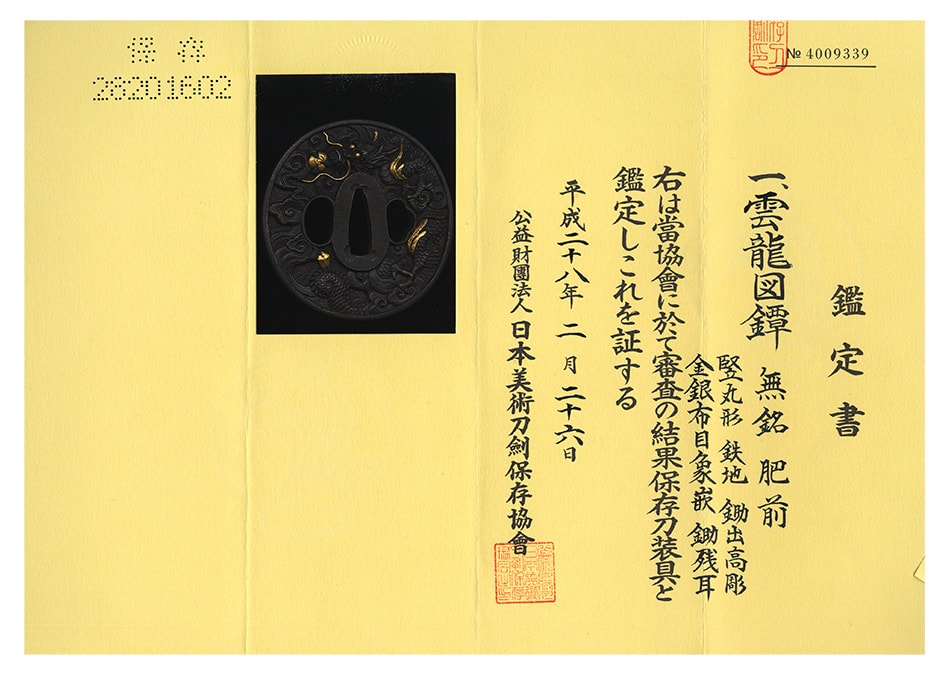 保存
28201602
№ 4009339
鑑定書
一、雲龍図鐔 無銘 肥前
竪丸形 鉄地 鋤出高彫
金銀布目象嵌 鋤残耳
右は當協會に於て審査の結果保存刀装具と
鑑定しこれを証する
平成二十八年 二月 二十六日
公益財團法人 日本美術刀劍保存協會